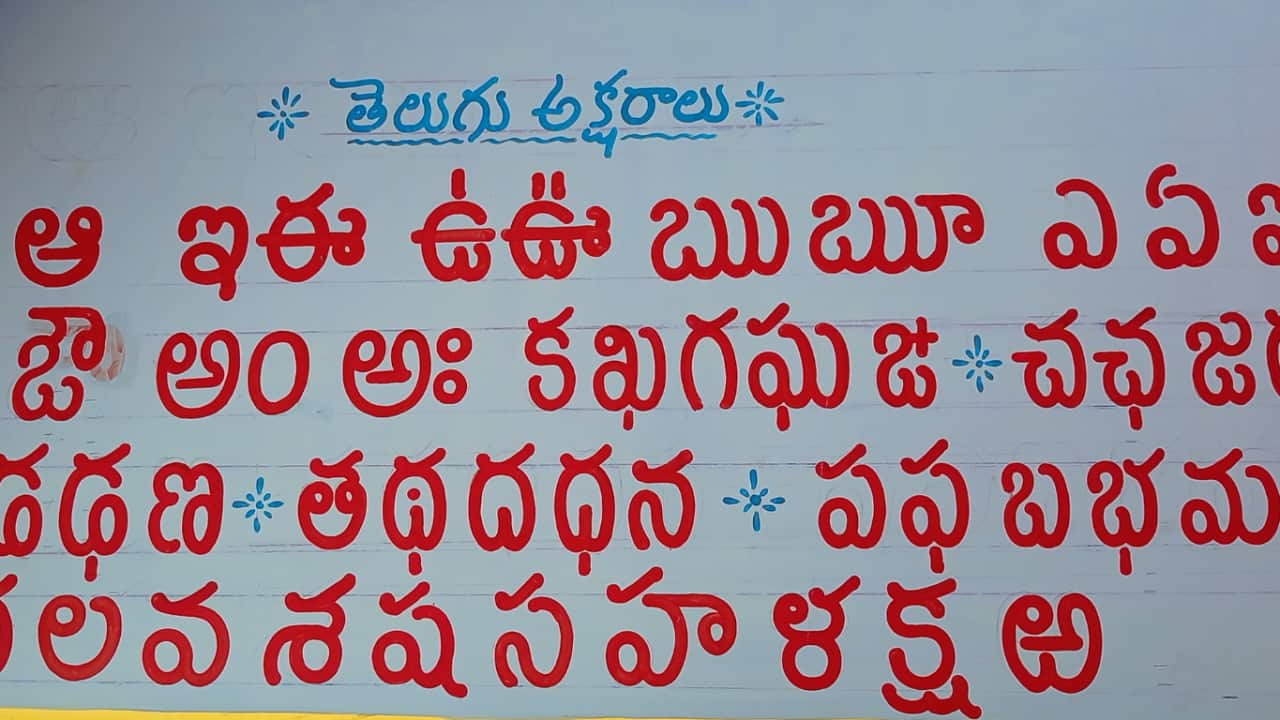 తెలుగు అక్షరాలు
ఆ ఇ ఈ ఉ ఊ ఋ ౠ ఎ ఏ
ఔ అం అః క ఖ గ ఘ ఙ చ ఛ జ
డ ఢ ణ త థ ద ధ న ప ఫ బ భ మ
ల వ శ ష స హ ళ క్ష ఱ